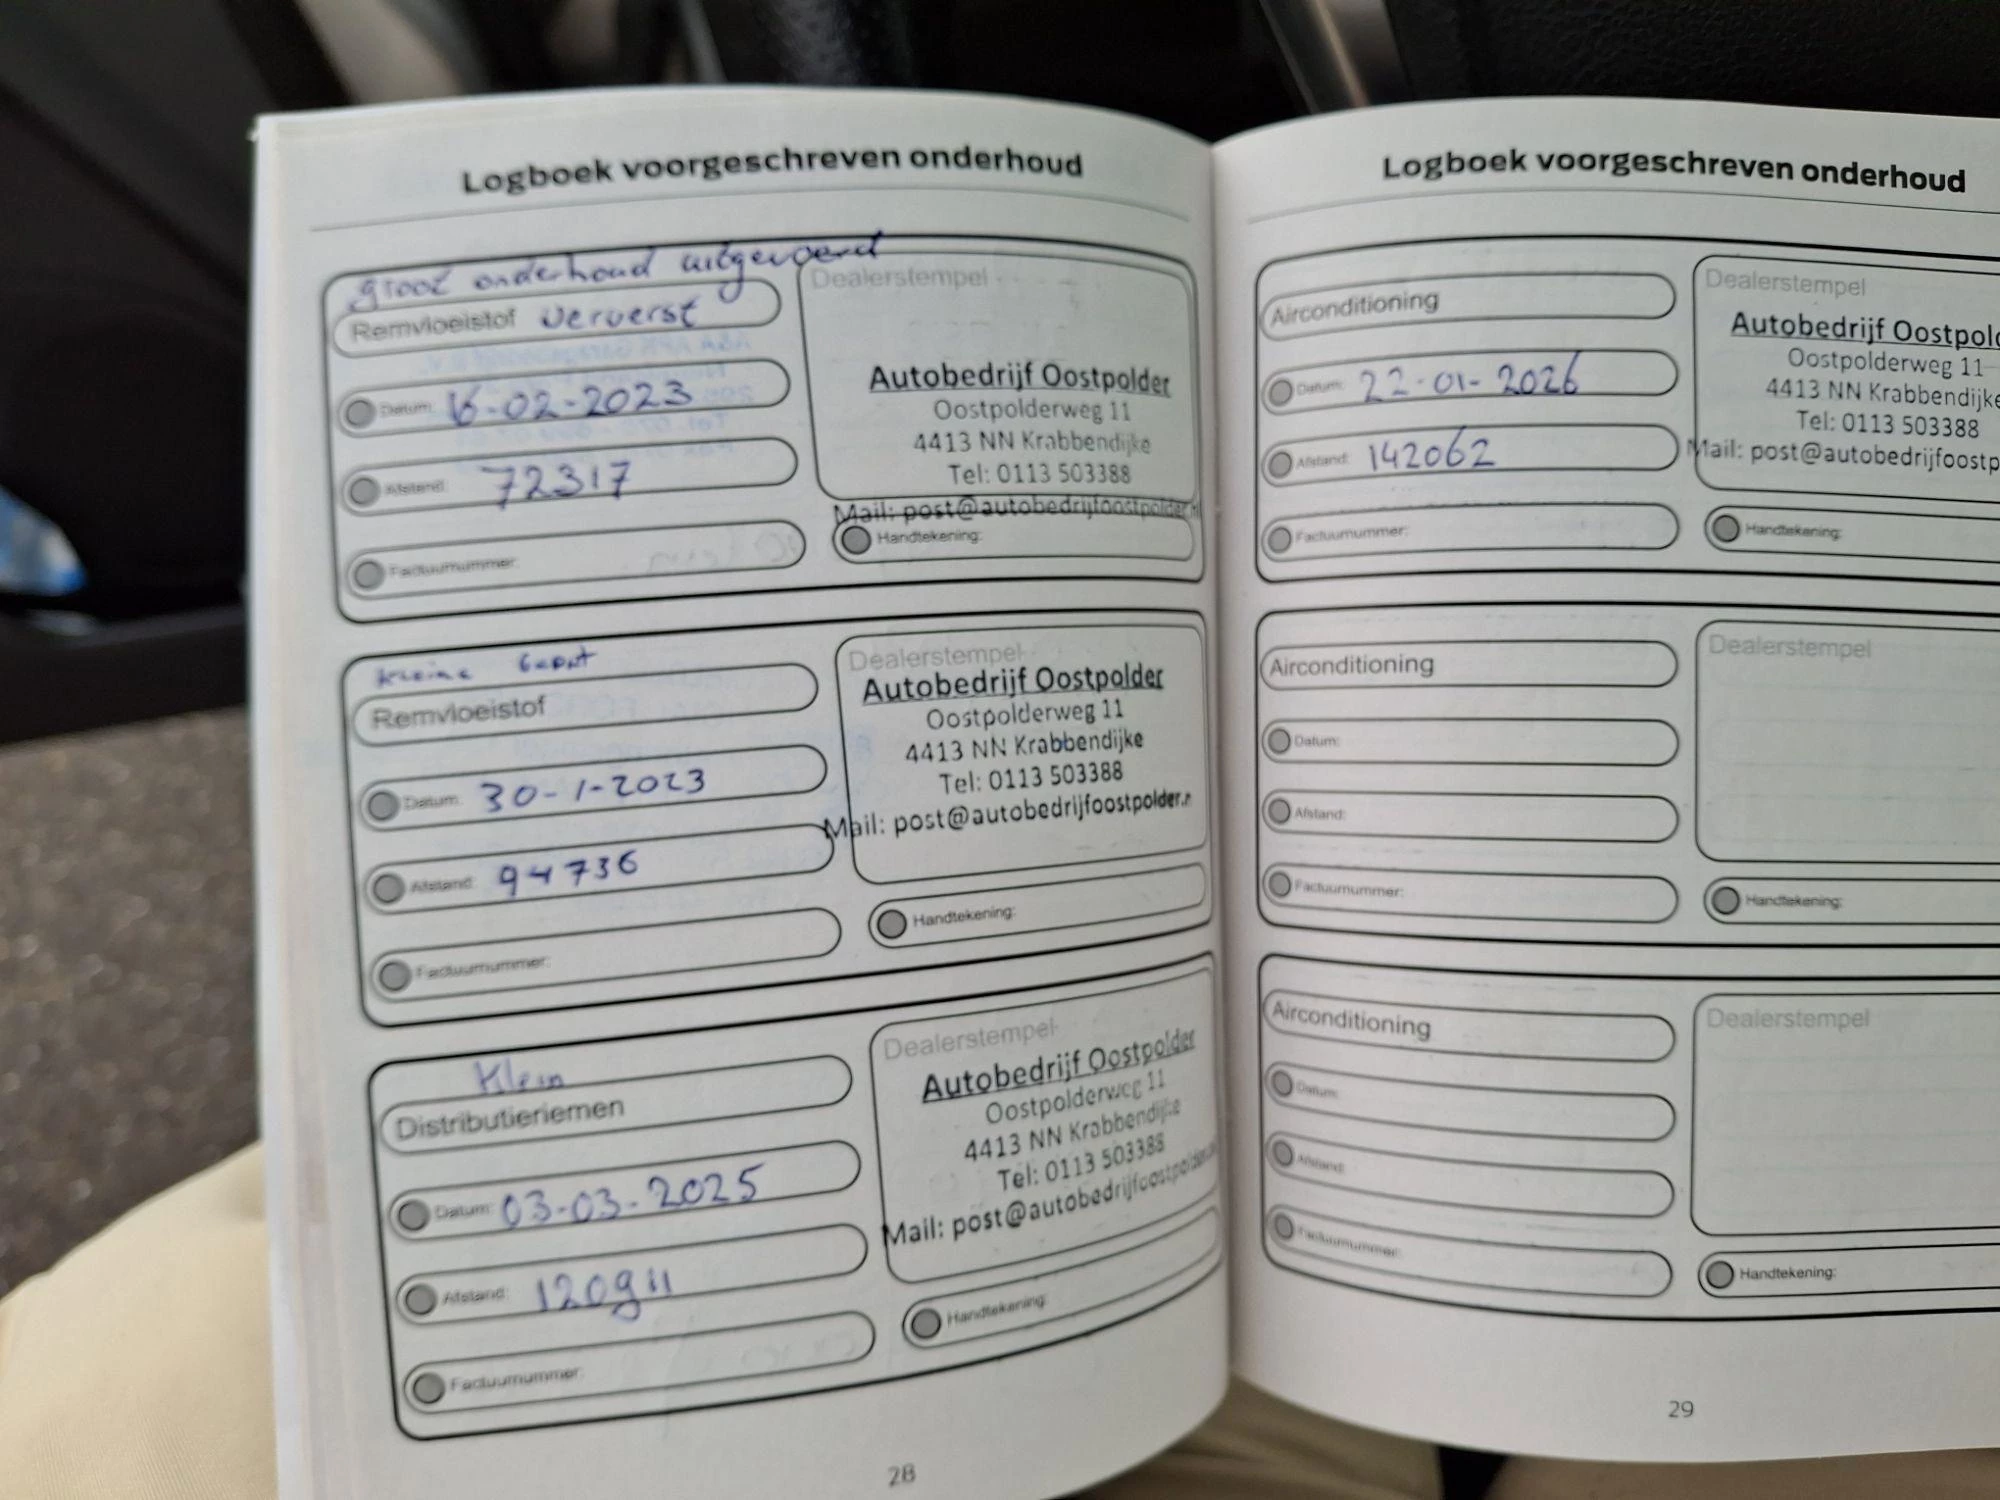 Logboek voorgeschreven onderhoud
groot onderhoud uitgevoerd
Remvloeistof ververst
Datum: 16-02-2023
Afstand: 72317
Factuurnummer:
Dealerstempel
Autobedrijf Oostpolder
Oostpolderweg 11
4413 NN Krabbendijke
Tel: 0113 503388
Mail: post@autobedrijfoostpolder.nl
Handtekening:
kleine
Remvloeistof
Datum: 30-1-2023
Afstand: 94736
Factuurnummer:
Dealerstempel
Autobedrijf Oostpolder
Oostpolderweg 11
4413 NN Krabbendijke
Tel: 0113 503388
Mail: post@autobedrijfoostpolder.n
Handtekening:
Klein
Distributieriemen
Datum: 03-03-2025
Afstand: 120911
Factuurnummer:
Dealerstempel
Autobedrijf Oostpolder
Oostpolderweg 11
4413 NN Krabbendijke
Tel: 0113 503388
Mail: post@autobedrijfoostpolder.
Handtekening:
28
Logboek voorgeschreven onderhoud
Airconditioning
Datum: 22-01-2026
Afstand: 142062
Factuurnummer:
Dealerstempel
Autobedrijf Oostpol
Oostpolderweg 11
4413 NN Krabbendijke
Tel: 0113 503388
Mail: post@autobedrijfoostp
Handtekening:
Airconditioning
Datum:
Afstand:
Factuurnummer:
Dealerstempel
Handtekening:
Airconditioning
Datum:
Afstand:
Factuurnummer:
Dealerstempel
Handtekening:
29